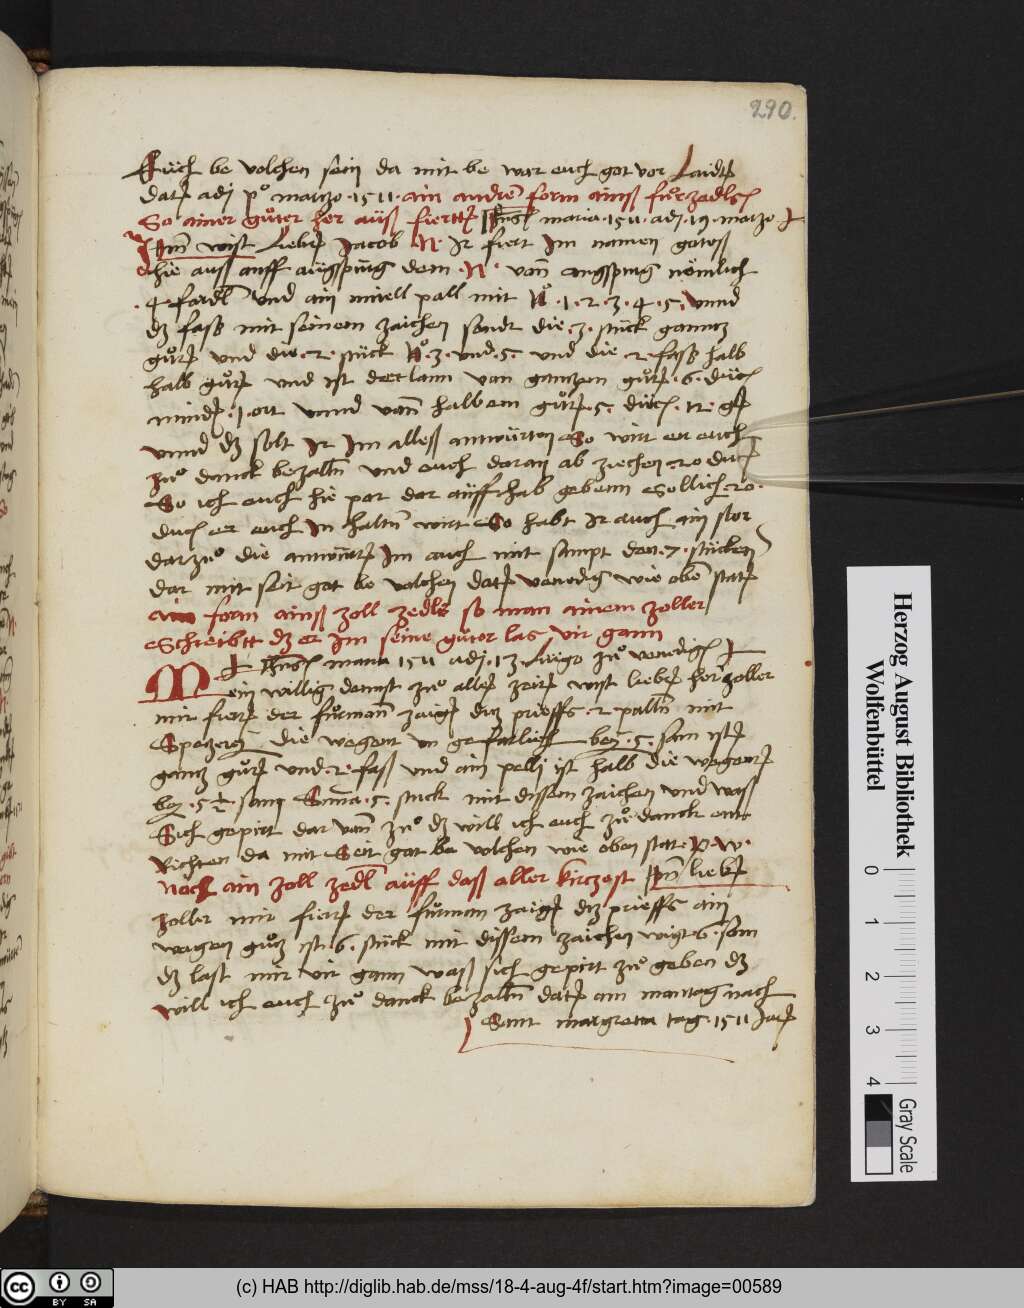 290.
Euch be volchen sein da mit be war euch got vor Laidt
datj adj po marczo · 1511 · ain andren form ainß fůrzedls
So ainer gůter her auß fiertt Jhus maria 1511 · adj · 19 · marzo
Jm wist Lieber Jacob N · Ir fiert Im namen gotteß
hie auss auff augspurg dem · N · vonn augspurg nömlich
· 4 · fardl vnd ain miell pall mit No · 1 · 2 · 3 · 4 · 5 · vnnd
dz fass mit seinem zaichen sendt die · 3 · stuck ganncz
gůtz vnd die · 2 · stuck No · 3 · vnd · 5 · vnd die · 2 · fass halb
halb gůtz vnd ist der lann von ganczen gůtz · 6 · duc
minder · 1 · ort vnnd vonn halbem gůtz · 5 · duc · 12 · g
vnnd dz solt Ir Im alleß antwurten So wirt er euch
zů danck bezalln vnd euch daran ab ziechen 20 duc
So ich euch hie par dar auff hab gebenn Sollich 20 ·
duc er euch In haltn wirt So habt Ir auch ain
dar zů die antwurt Im auch mit sampt den · 7 · stucken
dar mit seit got be volchen datj venedig wie oben statt
ain form ainß zoll zedls so man ainem zoller
Schreibtt dz er Im seine gůter las vir gann
Jhus maria 1511 adj · 13 · Luigo zů venedig
Mein willig dienst zů aller zeit wist lieber her zoller
mir fiert der fůrman zaiger diz prieffs · 2 · palln mit
Speczerej die wegent vn gefarlich bey · 5 · sam ist
gancz gůtz vnd · 2 · fass vnd ain pellj ist halb die wegent
bey · 5 ½ · sam Suma · 5 · stuck mit dissem zaichen vnd wass
Sich gepirt dar vonn zů dz will ich euch zů danck ent
Richten da mit Seit got be volchen wie oben stat · P · W ·
Noch ain zoll zedl auff daß aller kirczest Jm lieber
zoller mir fiert der fůrman zaiger diz prieffs ain
wagen gůcz ist · 6 · stuck mit dissem zaichen wigt 6 · som
dz last mir vir gann waß sich gepirt zů geben dz
will ich euch zů danck bezalln datj am mantag nach
Sant margreta tag · 1511 Jar
Herzog August Bibliothek
Wolfenbüttel
0 1 2 3 4
Gray Scale
cc BY SA
(c) HAB http://diglib.hab.de/mss/18-4-aug-4f/start.htm?image=00589